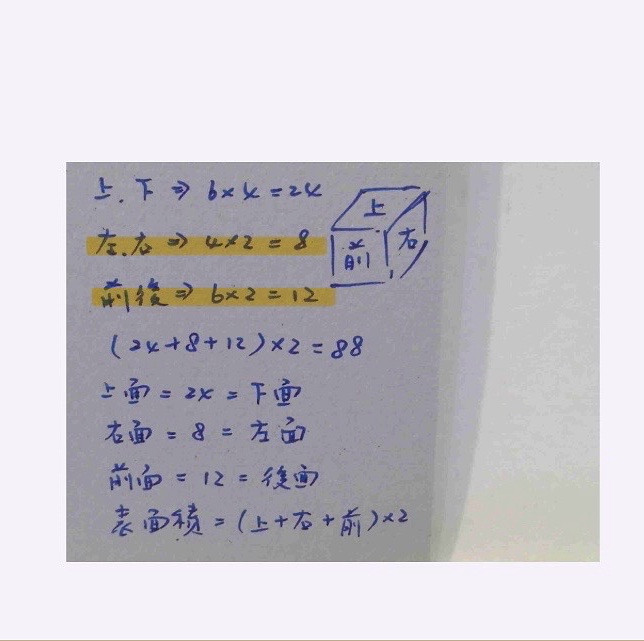 上.下 ⇒ 6×4=24
左.右 ⇒ 4×2=8
前後 ⇒ 6×2=12
上
前
右
(24+8+12)×2=88
上面=24=下面
右面=8=左面
前面=12=後面
表面積=(上+右+前)×2